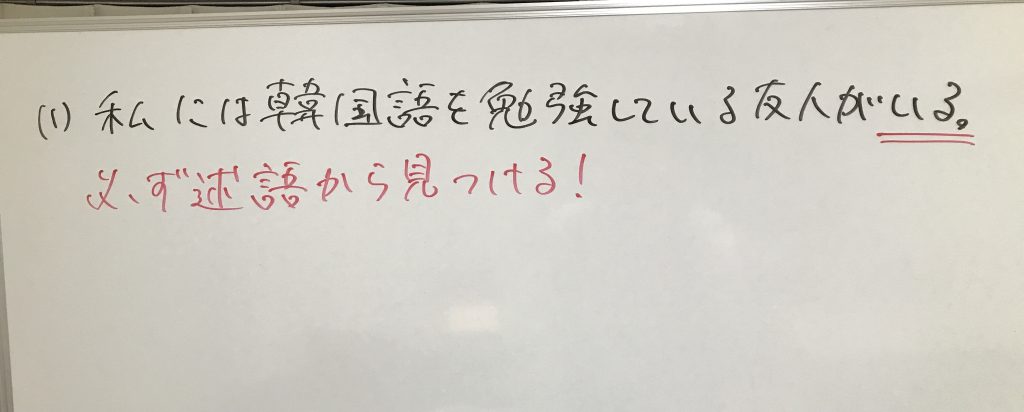 (1) 私には韓国語を勉強している友人がいる。
必ず述語から見つける!